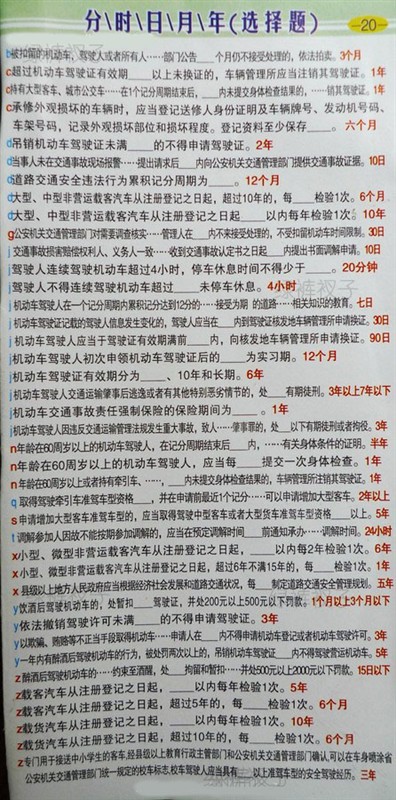 分\时\日\月\年(选择题) —20—
b被扣留的机动车，驾驶人或者所有人……部门公告____个月仍不接受处理的，依法拍卖。3个月
c超过机动车驾驶证有效期____以上未换证的，车辆管理所应当注销其驾驶证。1年
c持有大型客车、城市公交车……在1个记分周期结束后，____内未提交身体检查结果的，……销其驾驶证。1年
c承修外观损坏的车辆时，应当登记送修人身份证明及车辆牌号、发动机号码、
车架号码，记录外观损坏部位和损坏程度。登记资料至少保存____。六个月
d吊销机动车驾驶证未满____的不得申请驾驶证。2年
d当事人未在交通事故现场报警……提出请求后____内向公安机关交通管理部门提供交通事故证据。10日
d道路交通安全违法行为累积记分周期为____。12个月
d大型、中型非营运载客汽车从注册登记之日起，超过10年的，每____检验1次。6个月
d大型、中型非营运载客汽车从注册登记之日起____以内每年检验1次。10年
g公安机关交通管理部门对需要调查核实……管理人在____内不来接受处理的，不受扣留机动车时间限制。30日
j交通事故损害赔偿权利人、义务人一致……收到交通事故认定书之日起____内提出书面调解申请。10日
j驾驶人连续驾驶机动车超过4小时，停车休息时间不得少于____。20分钟
j驾驶人不得连续驾驶机动车超过____未停车休息。4小时
j机动车驾驶人在一个记分周期内累积记分达到12分的……接受为期____的道路……相关知识的教育。七日
j机动车驾驶证记载的驾驶人信息发生变化的，驾驶人应当在____内到驾驶证核发地车辆管理所申请换证。30日
j机动车驾驶人应当于驾驶证有效期满前____内，向核发地车辆管理所申请换证。90日
j机动车驾驶人初次申领机动车驾驶证后的____为实习期。12个月
j机动车驾驶证有效期分为____、10年和长期。6年
j机动车驾驶人交通运输肇事后逃逸或者有其他特别恶劣情节的，处____有期徒刑。3年以上7年以下
j机动车交通事故责任强制保险的保险期间为____。1年
j机动车驾驶人因违反交通运输管理法规发生重大事故，致人……肇事罪的，处____以下有期徒刑或者拘役。3年
n年龄在60周岁以上的机动车驾驶人，在记分周期结束后____内，……有关身体条件的证明。半年
n年龄在60周岁以上的机动车驾驶人，应当每____提交一次身体检查。1年
n年龄在60周岁以上或者持有牵引车、……，____内未提交身体检查结果的，车辆管理所注销其驾驶证。1年
q取得驾驶牵引车准驾车型资格____，并在申请前最近1个记分……可以申请增加大型客车。2年以上
s申请增加大型客车准驾车型的，应当取得驾驶中型客车或者大型货车准驾车型资格____以上。5年
t调解参加人因故不能按期参加调解的，应当在预定调解时间____前通知承办……调解时间。24小时
x小型、微型非营运载客汽车从注册登记之日起，____以内每2年检验1次。6年
x小型、微型非营运载客汽车从注册登记之日起，超过6年不满15年的，每____检验1次。1年
x县级以上地方人民政府应当根据经济社会发展和道路交通状况，每____制定道路交通安全管理规划。五年
y饮酒后驾驶机动车的，处暂扣____驾驶证，并处200元以上500元以下罚款。1个月以上3个月以下
y依法撤销驾驶许可未满____的不得申请驾驶证。3年
y以欺骗、贿赂等不正当手段取得机动车……申请人在____内不得申请机动车登记或者机动车驾驶许可。3年
y一年内有醉酒后驾驶机动车的行为，被处罚两次以上的，吊销机动车驾驶证____内不得驾驶营运机动车。5年
z醉酒后驾驶机动车的……约束至酒醒，处____拘留和暂扣……并处500元以上2000元以下罚款。15日以下
z载客汽车从注册登记之日起，____以内每年检验1次。5年
z载客汽车从注册登记之日起，超过5年的，每____检验1次。6个月
z载货汽车从注册登记之日起，____以内每年检验1次。10年
z载货汽车从注册登记之日起，超过10年的，每____检验1次。6个月
z专门用于接送中小学生的客车，经县级以上教育行政主管部门和公安机关交通管理部门确认，可以在车身喷涂省
公安机关交通管理部门统一规定的校车标志，校车驾驶人应当具有____以上准驾车型的安全驾驶经历。三年